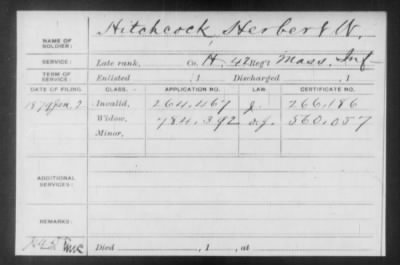 NAME OF SOLDIER: Hitchcock Herbert W.
SERVICE: Late rank, Co. H, 42 Reg't Mass. Inf
TERM OF SERVICE: Enlisted , 1 Discharged , 1
DATE OF FILING. CLASS. APPLICATION NO. LAW. CERTIFICATE NO.
1879 Jan. 2. Invalid, 264.467 266.186
Widow, 784.392 560.057
Minor,
ADDITIONAL SERVICES:
REMARKS:
Died , 1 , at